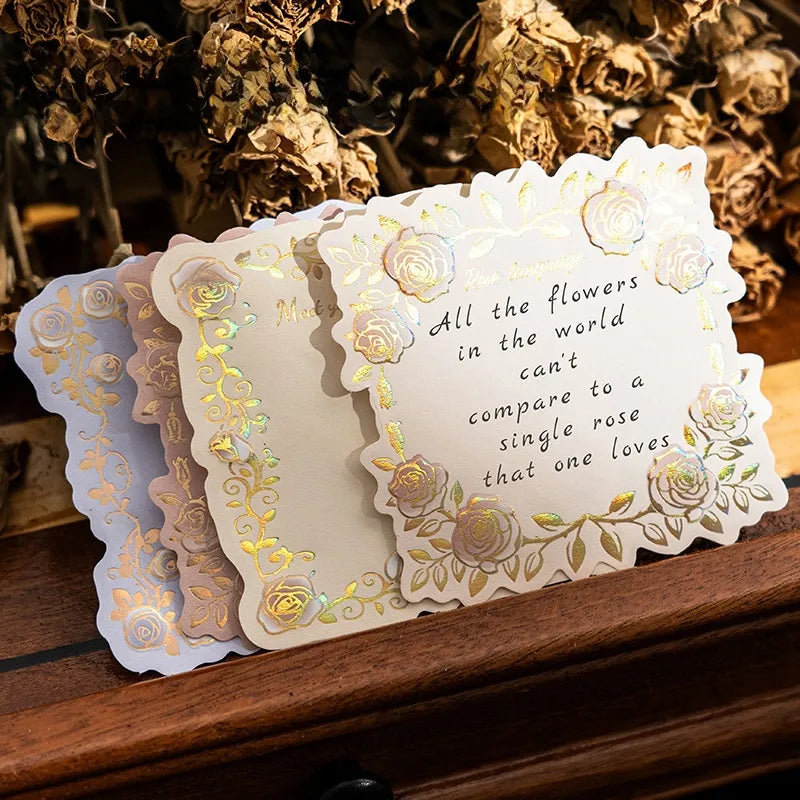 Rose language
All the flowers
in the world
can't
compare to a
single rose
that one loves